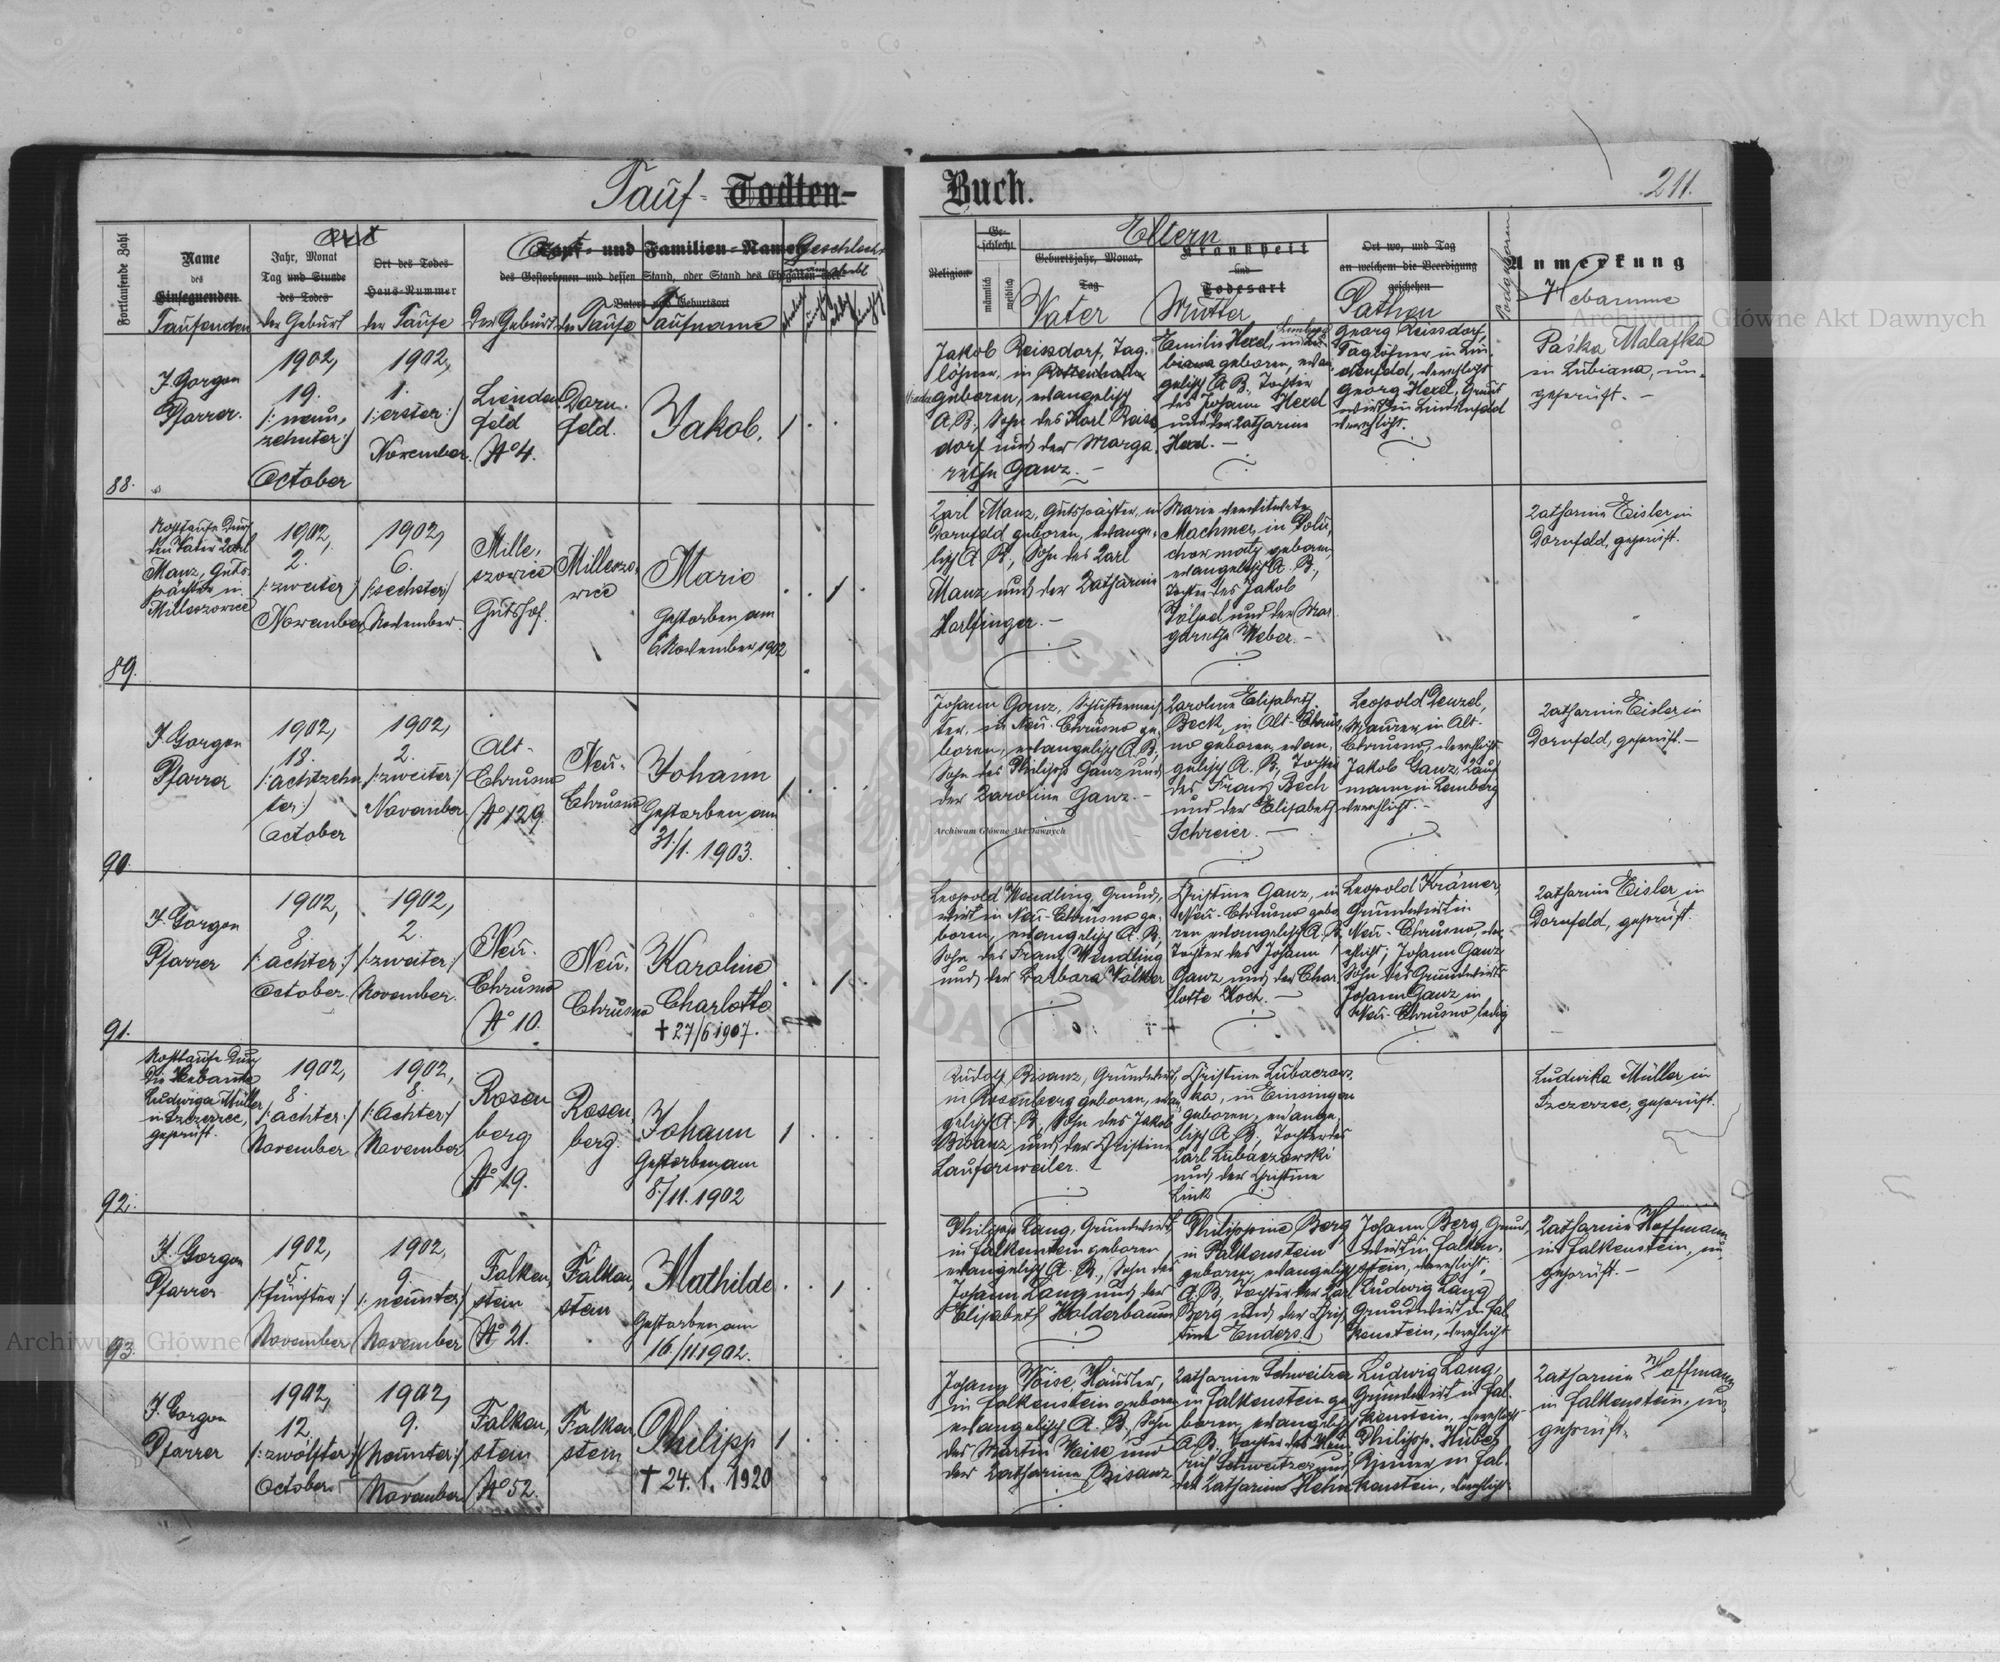 Tauf- Todten-
Buch.
211.
Fortlaufende Zahl
Name
des
Einsegnenden
Taufenden
Jahr, Monat
Tag und Stunde
des Todes
der Geburt
Ort des Todes
Haus-Nummer
der Taufe
Ort
und Familien-Name
des Gestorbenen und dessen Stand, oder Stand des Ehegatten oder
Vaters und Geburtsort
Der Geburt
der Taufe
Taufname
Geschlecht
Religion
Ge-
schlecht
männlich
weiblich
Eltern
Geburtsjahr, Monat,
Tag
Vater
Krankheit
und
Todesart
Mutter
Ort wo, und Tag
an welchem die Beerdigung
geschehen
Pathen
Anmerkung
Hebamme
88.
J. Gorgon
Pfarrer.
1902,
19.
/: neun,
zehnter :/
October
1902,
1.
/: erster :/
November.
Linden
feld
No 4.
Dorn.
feld.
Jakob.
1
Jakob Reissdorf, Tag.
löhner, in
geboren, evangelisch
A.B., Sohn des Karl Reiss
dorf und der Marga
rethe Ganz. –
Emilie Hexel, in
geboren, evan
gelisch A.B., Tochter
des Johann Hexel
und der Katharine
Hexel. –
Georg Reissdorf,
Taglöhner in Lin,
denfeld, verehlicht
Georg Hexel, Grund
wirt in Lindenfeld
verehlicht.
Paśka Malafka
in Lubiana, un,
geprüft. –
89.
Nottaufe durch
den Vater Karl
Manz, Guts,
pächter in
Milleszowice
1902,
2.
/: zweiter :/
November
1902,
6.
/: sechster :/
November.
Mille,
szowice
Gutshof.
Milleszo,
wice
Marie
Gestorben am
6 November 1902
1
Karl Manz, Gutspächter, in
Dornfeld geboren, evange,
lisch A.B., Sohn des Karl
Manz, und der Katharine
Harlfinger. –
Marie verwitwete
Machmer, in
geboren
evangelisch A.B.,
Tochter des Jakob
und der Mar
garethe Weber. –
Katharine Eisler in
Dornfeld, geprüft.
90.
J. Gorgon
Pfarrer
1902,
18.
/: achtzehn
ter :/
October
1902,
2.
/: zweiter :/
November
Alt-
Chrusno
No 129.
Neu-
Chrusno
Johann
Gestorben am
31./1. 1903.
1
Johann Ganz, Schustermeis
ter, in Neu-Chrusno ge,
boren, evangelisch A.B.,
Sohn des Philipp Ganz und
der Karoline Ganz. –
Karoline Elisabeth
Beck, in Alt-Chrus,
no geboren, evan,
gelisch A.B., Tochter
des Franz Beck
und der Elisabeth
Schreier. –
Leopold Denzel,
Maurer in Alt-
Chrusno, verehlicht
Jakob Ganz, Kauf
mann in Lemberg
verehlicht. –
Katharine Eisler in
Dornfeld, geprüft. –
91.
J. Gorgon
Pfarrer
1902,
8.
/: achter :/
October.
1902,
2.
/: zweiter :/
November.
Neu-
Chrusno
No 10.
Neu-
Chrusno
Karoline
Charlotte
+ 27/6 1907.
1
Leopold Wendling, Grund,
wirt in Neu-Chrusno ge,
boren, evangelisch A.B.,
Sohn des Franz Wendling
und der Barbara Völker
Christine Ganz, in
Neu-Chrusno gebo
ren evangelisch A.B.
Tochter des Johann
Ganz und der Char,
lotte Koch. –
Leopold Krämer,
Grundwirt in
Neu-Chrusno, ver,
ehlicht; Johann Ganz
Sohn des Grundwirts
Johann Ganz in
Neu-Chrusno, ledig
Katharine Eisler in
Dornfeld, geprüft.
92.
Nottaufe durch
die Hebamme
Ludwiga Müller
in Szczerzec,
geprüft.
1902,
8.
/: achter :/
November
1902,
8.
/: achter :/
November
Rosen
berg
No 19.
Rosen,
berg.
Johann
Gestorben am
8./11. 1902
1
Rudolf Bisanz, Grundwirt,
in Rosenberg geboren, evan
gelisch A.B., Sohn des Jakob
Bisanz und der Christine
Laufersweiler.
Christine Lubaczews
ka, in Einsingen
geboren, evange,
lisch A.B., Tochter des
Karl Lubaczewski
und der Christine
Link
Ludwika Müller in
Szczerzec, geprüft.
93.
J. Gorgon
Pfarrer
1902,
5.
/: fünfter :/
November
1902,
9.
/: neunter :/
November
Falken,
stein
No 21.
Falken,
stein
Mathilde
Gestorben am
16./11 1902.
1
Philipp Lang, Grundwirt,
in Falkenstein geboren
evangelisch A.B., Sohn des
Johann Lang und der
Elisabeth Halderbaum
Philippine Berg
in Falkenstein
geboren, evangelisch
A.B., Tochter der Karl
Berg und der Chris
tine Enders.
Johann Berg, Grund,
wirt in Falken,
stein, verehlicht;
Ludwig Lang
Grundwirt in Fal
kenstein, verehlicht
Katharine Hoffmann
in Falkenstein, un
geprüft. –
J. Gorgon
Pfarrer
1902,
12.
/: zwölfter :/
October
1902,
9.
/: neunter :/
November
Falken,
stein
No 52.
Falken
stein
Philipp
+ 24. 1. 1920
1
Johann Weise, Häusler,
in Falkenstein geboren
evangelisch A.B., Sohn
des Martin Weise und
der Katharine Bisanz
Katharine Schweitzer
in Falkenstein ge
boren, evangelisch
A.B., Tochter des Hein,
rich Schweitzer und
der Katharine Hehn
Ludwig Lang,
Grundwirt in Fal,
kenstein, verehlicht
Philipp Huber
in Fal,
kenstein, verehlicht
Katharine Hoffmann
in Falkenstein, un
geprüft.
Archiwum Główne Akt Dawnych
Archiwum Główne Akt Dawnych
Archiwum Główne